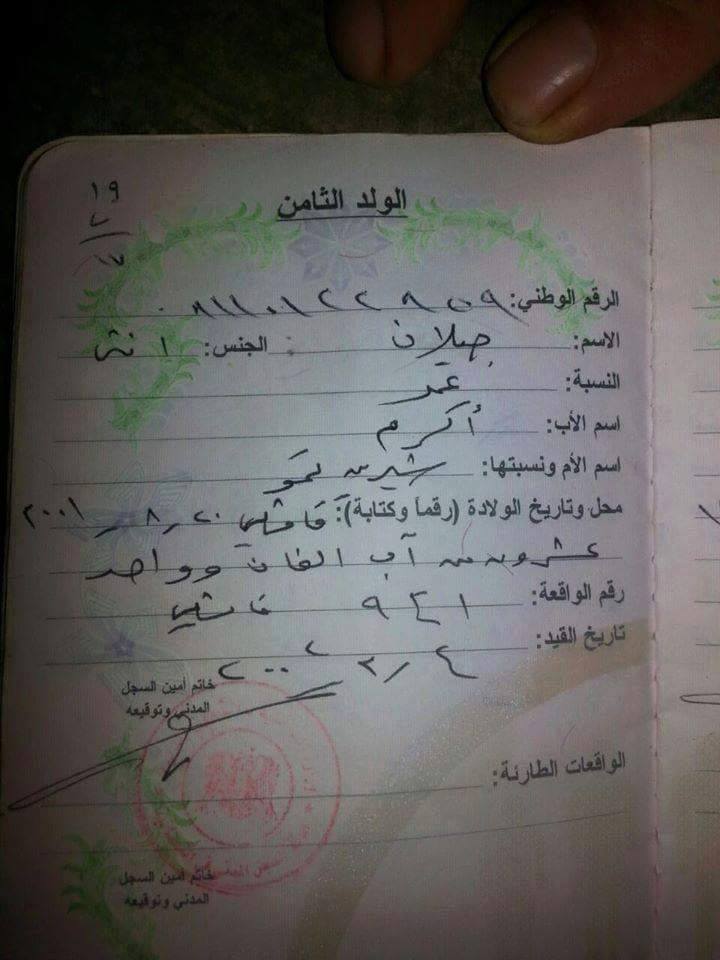 ١٩
٢
٧
الولد الثامن
الرقم الوطني:
الاسم: جيلان الجنس: انثى
النسبة: عمر
اسم الأب: أكرم
اسم الأم ونسبتها: شيرين
محل وتاريخ الولادة (رقماً وكتابة): قامشلي ٢٠ / ٨ / ٢٠٠١
عشرون من آب الفان وواحد
رقم الواقعة: ٩٤١ قامشلي
تاريخ القيد: ٤ / ٣ / ٢٠٠٢
خاتم أمين السجل
المدني وتوقيعه
الواقعات الطارئة:
خاتم أمين السجل
المدني وتوقيعه